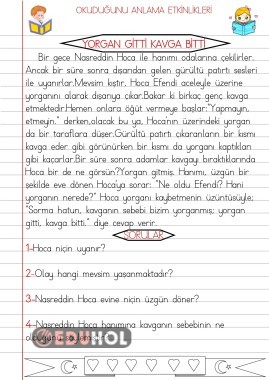 OKUDUĞUNU ANLAMA ETKİNLİKLERİ
YORGAN GİTTİ KAVGA BİTTİ
Bir gece Nasreddin Hoca ile hanımı odalarına çekilirler.
Ancak bir süre sonra dışarıdan gelen gürültü patırtı sesleri
ile uyanırlar.Mevsim kıştır, Hoca Efendi aceleyle üzerine
yorganını alarak dışarıya çıkar.Bakar ki birkaç genç kavga
etmektedir.Hemen onlara öğüt vermeye başlar:"Yapmayın,
etmeyin." derken,olacak bu ya, Hoca'nın üzerindeki yorgan
da bir taraflara düşer.Gürültü patırtı çıkaranların bir kısmı
kavga eder gibi görünürken bir kısmı da yorganı kaptıkları
gibi kaçarlar.Bir süre sonra adamlar kavgayı bıraktıklarında
Hoca bir de ne görsün?Yorgan gitmiş. Hanımı, üzgün bir
şekilde eve dönen Hoca'ya sorar: "Ne oldu Efendi? Hani
yorganın nerede?" Hoca yorganı kaybetmenin üzüntüsüyle;
"Sorma hatun, kavganın sebebi bizim yorganmış; yorgan
gitti, kavga bitti." diye cevap verir.
SORULAR
1-Hoca niçin uyanır?
2-Olay hangi mevsim yaşanmaktadır?
3-Nasreddin Hoca evine niçin üzgün döner?
4-Nasreddin Hoca hanımına kavganın sebebinin ne
olduğunu söyler?
EĞİTİMHOL